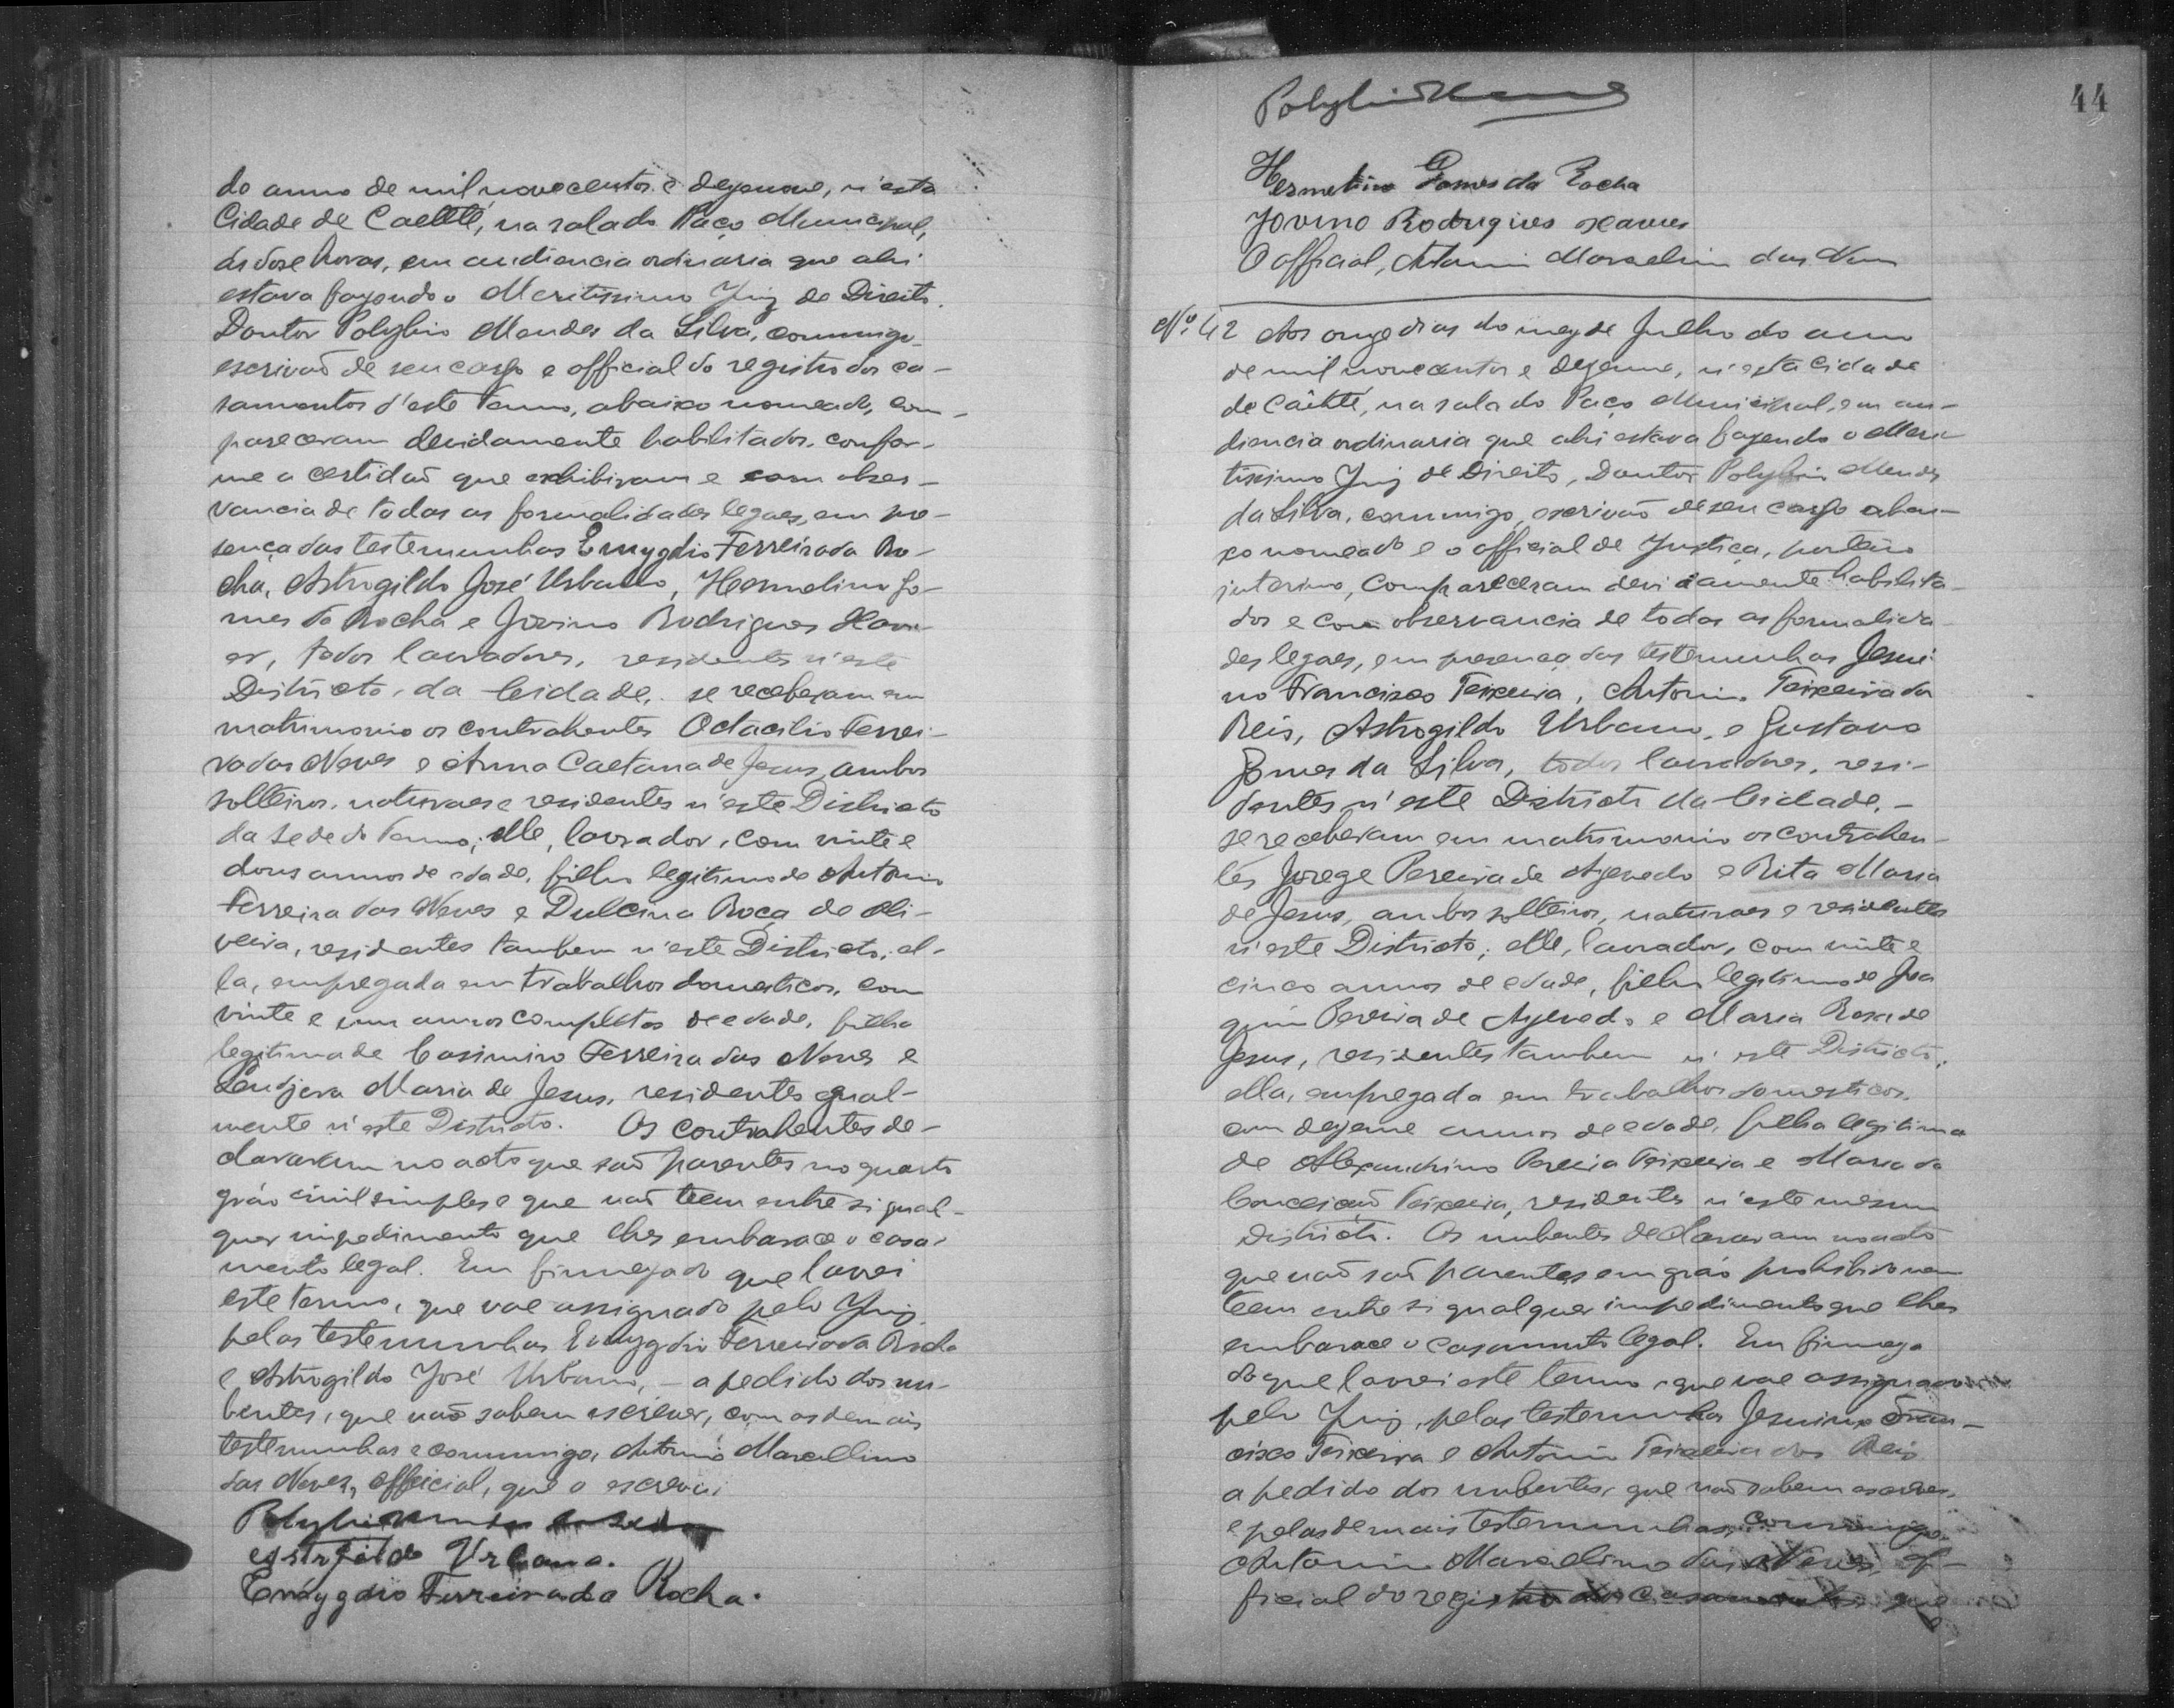 do anno de mil novecentos e dezenove, n'esta
Cidade de Caetité, na sala do Paço Municipal,
ás dose horas, em audiencia ordinaria que ahi
estava fazendo o Meritissimo Juiz de Direito.
Doutor Polybio Mendes da Silva, commigo
escrivaõ de seu cargo e official do registro dos ca-
samentos d'este Termo, abaixo nomeado, com-
pareceram devidamente habilitados, confor-
me a certidaõ que exhibiram e com obser-
vancia de todas as formalidades legaes, em pre-
sença das testemunhas Emygdio Ferreira da Ro-
cha, Astrogildo José Urbano, Hermelino Go-
mes da Rocha e Jovino Rodrigues Xavi-
er, todos lavradores, residentes n'este
Districto, da Cidade, se receberam em
matrimonio os contrahentes Octacilio Ferrei-
ra das Neves e Anna Caetana de Jesus, ambos
solteiros, naturaes e residentes n'este Districto
da Séde do Termo; elle, lavrador, com vinte e
dous annos de edade, filho legitimo de Antonio
Ferreira das Neves e Dulcina Roça de Oli-
veira, residentes tambem n'este Districto; el-
la, empregada em trabalhos domesticos, com
vinte e um annos completos de edade, filha
legitima de Casimiro Ferreira das Neves e
Maria de Jesus, residentes egual-
mente n'este Districto. Os contrahentes de-
clararam no acto que saõ parentes no quarto
gráo civil simples e que naõ teem entre si qual-
quer impedimento que lhes embarace o casa-
mento legal. Em firmeza do que lavrei
este termo, que vae assignado pelo Juiz,
pelas testemunhas Emygdio Ferreira da Rocha
e Astrogildo José Urbano, - a pedido dos nu-
bentes, que naõ sabem escrever, com as demais
testemunhas e commigo, Antonio Marcellino
das Neves, official, que o escrevi.
Polybio Mendes da Silva
Urbano.
Emygdio Ferreira da Rocha.
44
Polybio
Hermelino Gomes da Rocha
Jovino Rodrigues Xavier
O official, Antonio Marcelino das Neves
Nº. 42 Aos onze dias do mez de Julho do anno
de mil novecentos e dezenove, n'esta Cidade
de Caêtité, na sala do Paço Municipal, em au-
diencia ordinaria que ahi estava fazendo o Meri-
tissimo Juiz de Direito, Doutor Polybio Mendes
da Silva, commigo, escrivaõ de seu cargo abai-
xo nomeado e o official de Justiça, porteiro
interino, compareceram devidamente habilita-
dos e com observancia de todas as formalida-
des legaes, em presença das testemunhas Jesui-
no Francisco Teixeira, Antonio Teixeira dos
Reis, Astrogildo Urbano, e Gustavo
Gomes da Silva, todos lavradores, resi-
dentes n'este Districto da Cidade, -
se receberam em matrimonio os contrahen-
tes Jorege Pereira de Azevedo e Rita Maria
de Jesus, ambos solteiros, naturaes e residentes
n'este Districto; elle, lavrador, com vinte e
cinco annos de edade, filho legitimo de Joa
quim Pereira de Azevedo e Maria Rosa de
Jesus, residentes tambem n'este Districto;
ella, empregada em trabalhos domesticos,
com dezenove annos de edade, filha legitima
de Alexandrino Pereira Teixeira e Maria da
Conceiçaõ Teixeira, residentes n'este mesmo
Districto. Os nubentes declararam no acto
que naõ saõ parentes em gráo prohibido nem
teem entre si qualquer impedimento que lhes
embarace o casamento legal. Em firmeza
do que lavrei este termo, que vae assignado
pelo Juiz, pelas testemunhas Jesuino Fran-
cisco Teixeira e Antonio Teixeira dos Reis
a pedido dos nubentes, que naõ sabem escrever,
e pelas demais testemunhas, commigo
Antonio Marcelino das Neves, of-
ficial do registro dos casamentos que